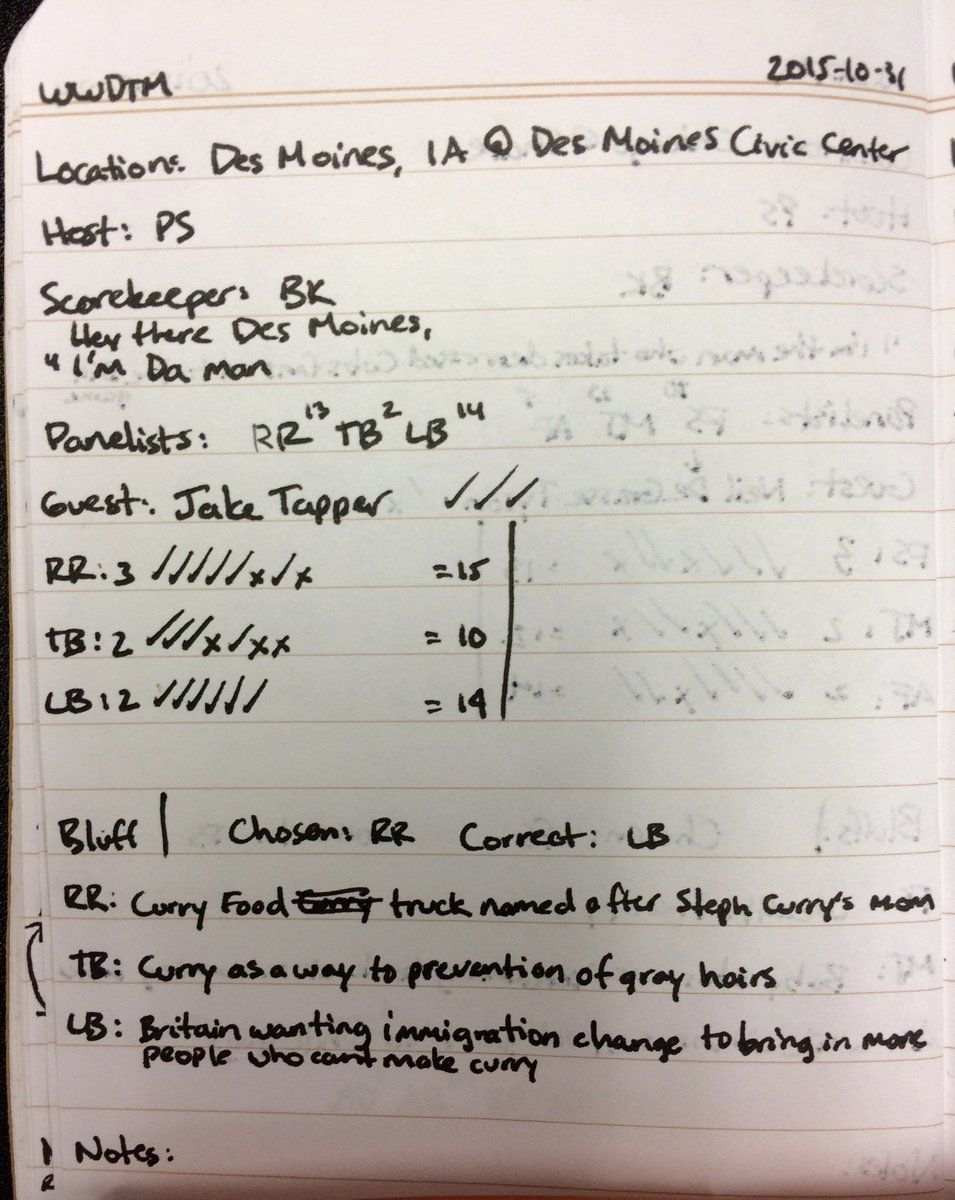 WWDTM 2015-10-31
Location: Des Moines, IA @ Des Moines Civic Center
Host: PS
Scorekeeper: BK
Hey there Des Moines,
" I'm Da man
Panelists: RR 13 TB 2 LB 14
Guest: Jake Tapper ✓✓✓
RR: 3 ✓✓✓✓✓x✓x = 15
TB: 2 ✓✓✓x✓xx = 10
LB: 2 ✓✓✓✓✓✓ = 14
Bluff | Chosen: RR Correct: LB
RR: Curry Food truck named after Steph Curry's mom
TB: Curry as a way to prevention of gray hairs
LB: Britain wanting immigration change to bring in more
people who can't make curry
Notes: